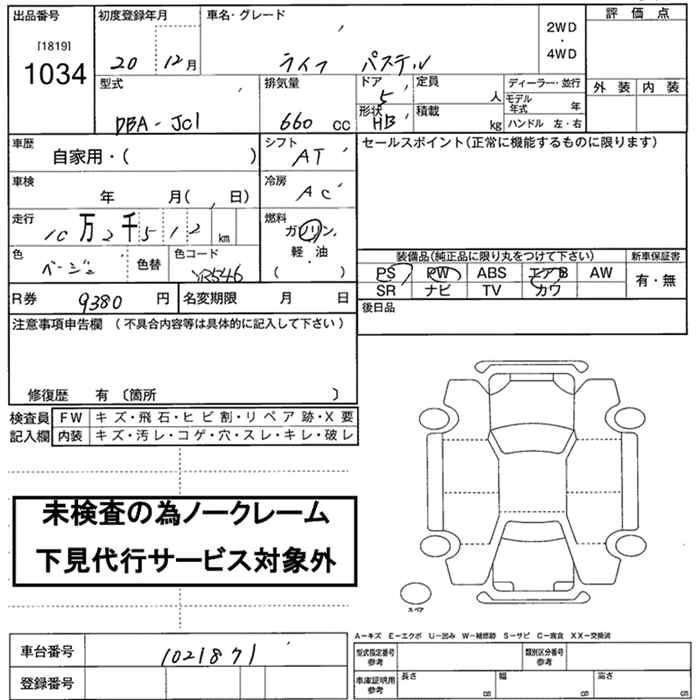 出品番号
[1819]
1034
初度登録年月
20 12月
車名・グレード
ライフ パステル
2WD
・
4WD
評価点
外装 内装
型式
DBA-JC1
排気量
660 cc
ドア
5
形状
HB
定員
人
積載
kg
ディーラー・並行
モデル年式 年
ハンドル 左・右
車歴
自家用・( )
シフト
AT
セールスポイント(正常に機能するものに限ります)
車検
年 月( , 日)
冷房
AC
走行
10万2千512km
燃料
ガソリン
軽・油
( )
色
ベージュ
色替
色コード
YR546
装備品(純正品に限り丸をつけて下さい)
新車保証書
PS PW ABS エアB AW
SR ナビ TV カワ
有・無
R券
9380 円
名変期限 月 日
後日品
注意事項申告欄 (不具合内容等は具体的に記入して下さい)
修復歴 有 〔箇所 〕
検査員記入欄
FW キズ・飛石・ヒビ割・リペア跡・X要
内装 キズ・汚レ・コゲ・穴・スレ・キレ・破レ
未検査の為ノークレーム
下見代行サービス対象外
スペア
A-キズ E-エクボ U-凹み W-補修跡 S-サビ C-腐食 XX-交換済
車台番号
1021871
登録番号
型式指定番号
参考
類別区分番号
参考
車庫証明用
参考
長さ cm
幅 cm
高さ cm